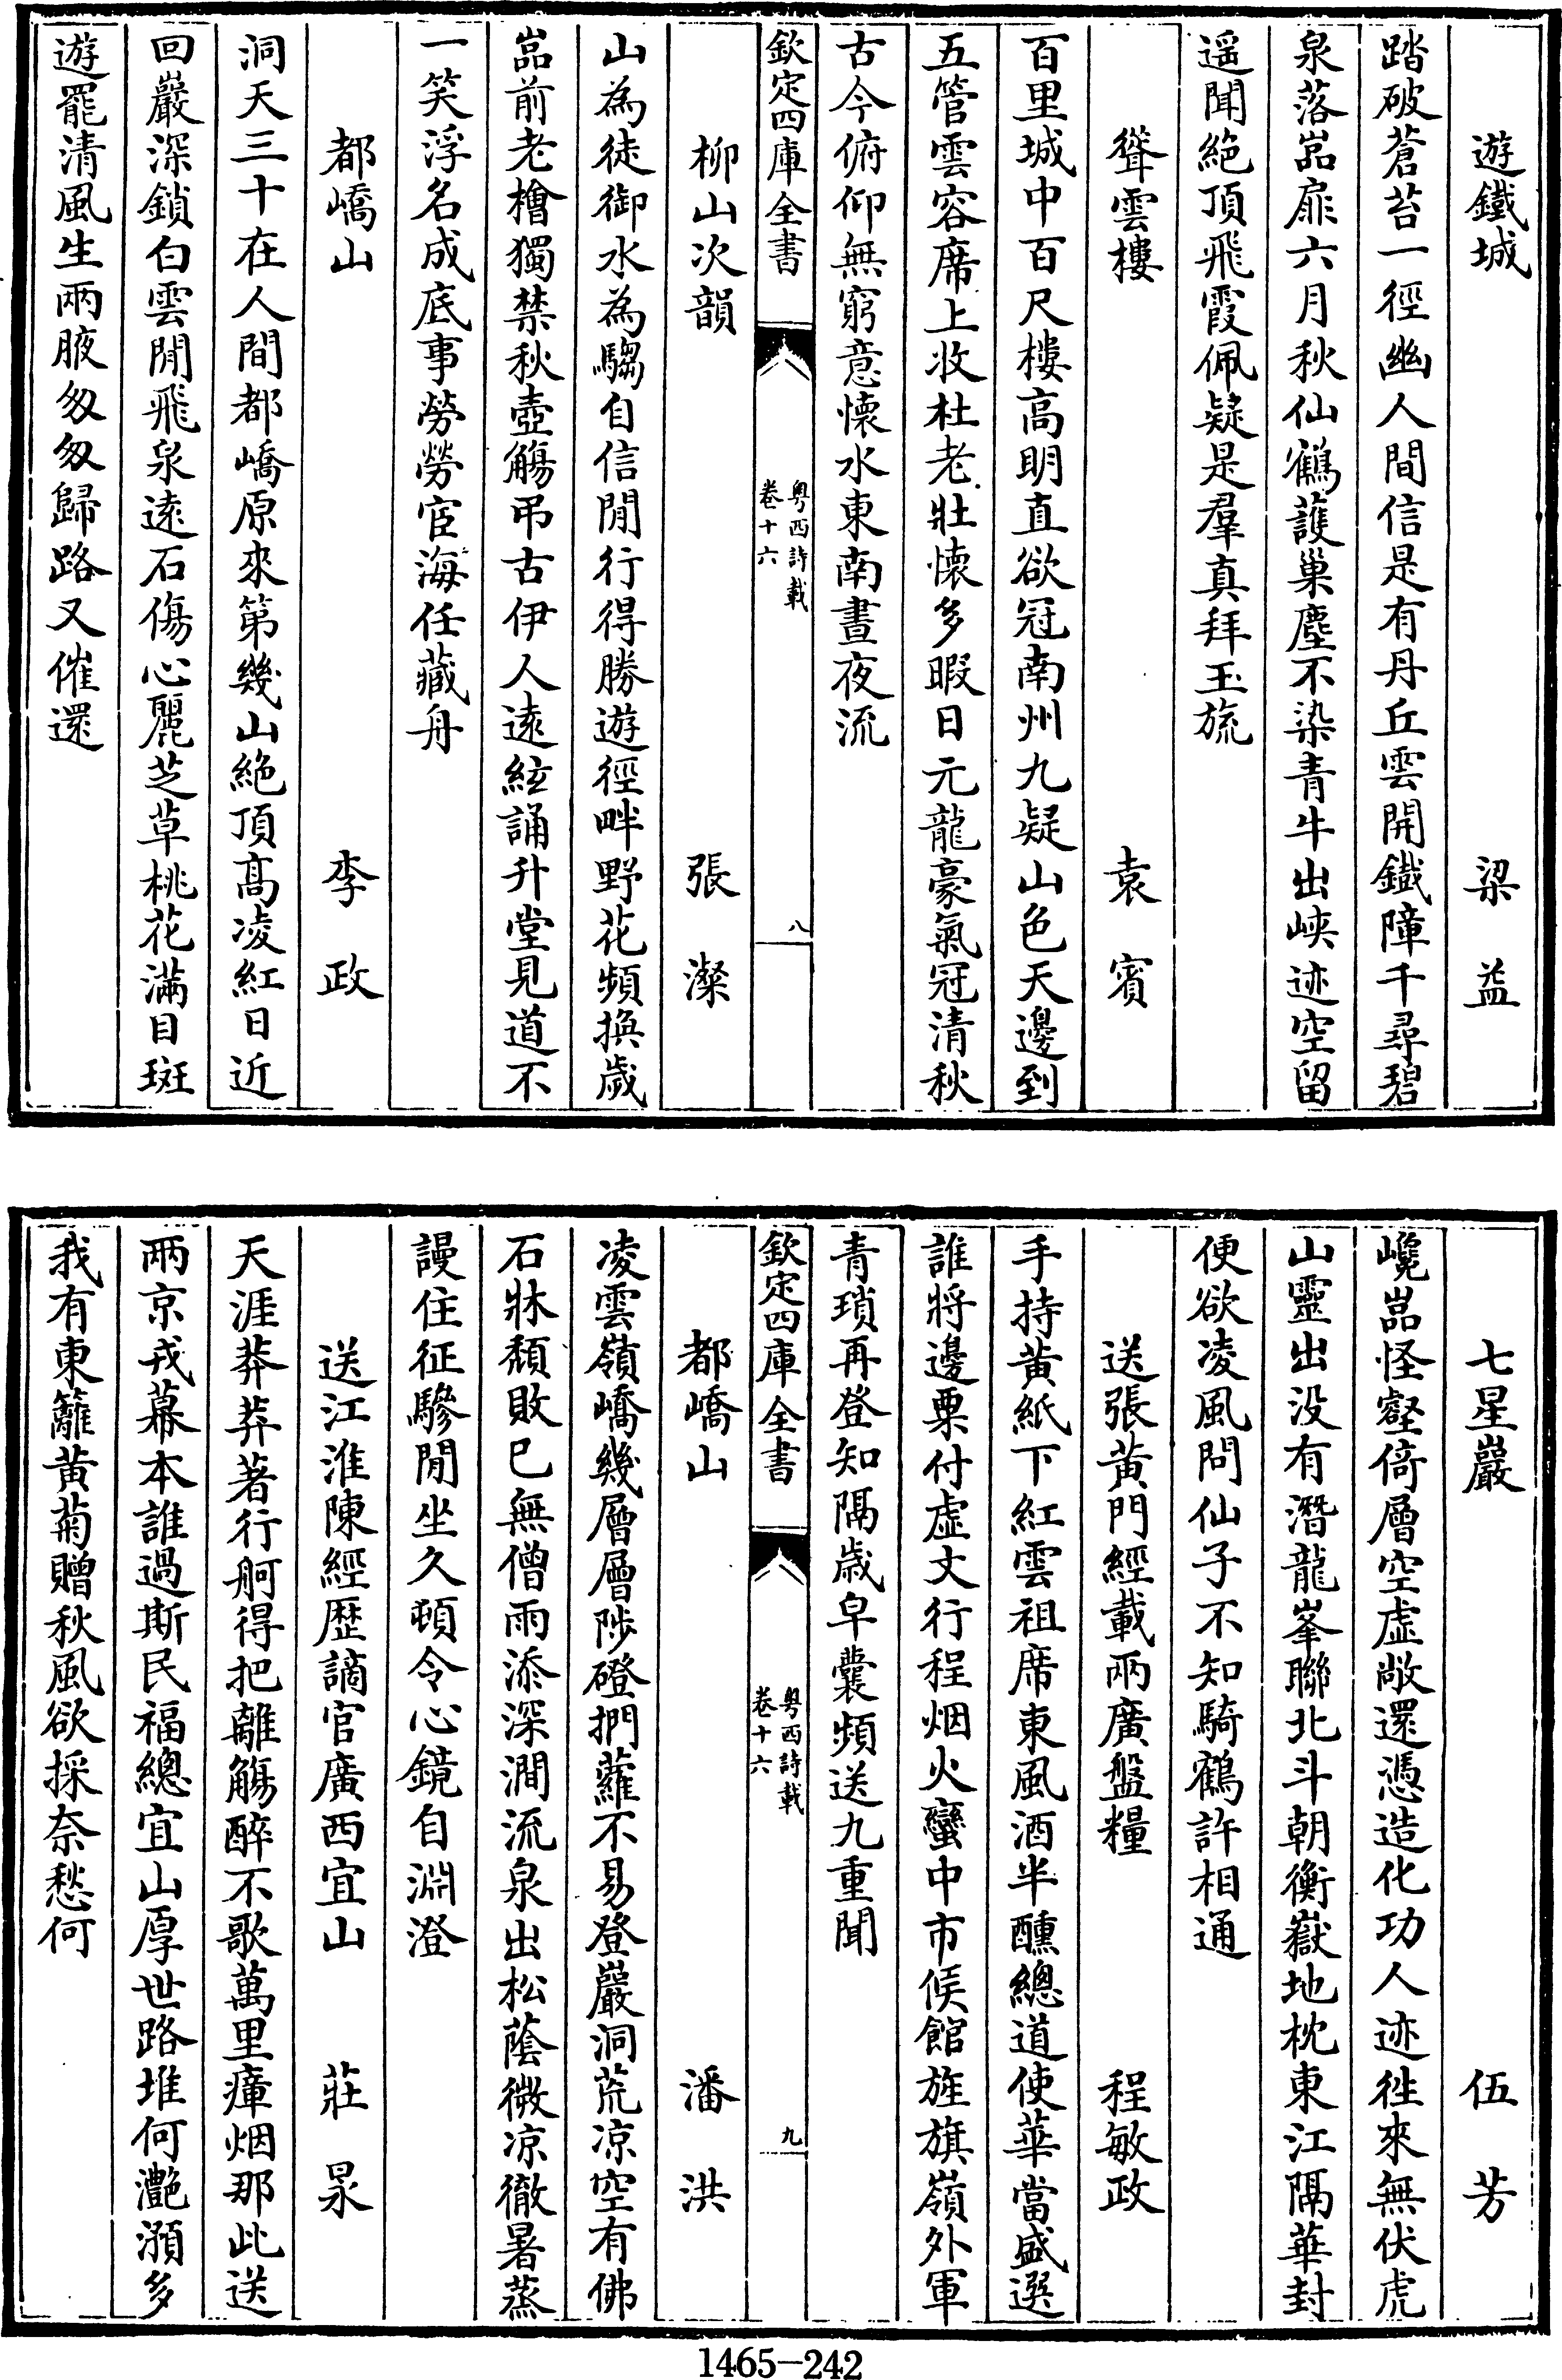 遊鐵城　梁　益
踏破蒼苔一徑幽人間信是有丹丘雲開鐵障千尋碧
泉落嵓扉六月秋仙鶴護巢塵不染青牛出峽迹空留
遥聞絕頂飛霞佩疑是羣真拜玉旒
聳雲樓　袁　賓
百里城中百尺樓高明直欲冠南州九疑山色天邊到
五管雲容席上收杜老壯懷多暇日元龍豪氣冠清秋
古今俯仰無窮意懷水東南晝夜流
欽定四庫全書　粵西詩載卷十六　八
柳山次韻　張　澯
山為徒御水為騶自信閒行得勝遊徑畔野花頻換歲
嵓前老檜獨禁秋壺觴弔古伊人遠絃誦升堂見道不
一笑浮名成底事勞勞宦海任藏舟
都嶠山　李　政
洞天三十在人間都嶠原來第幾山絶頂高凌紅日近
回巖深鎖白雲閒飛泉遠石傷心麗芝草桃花滿目斑
遊罷清風生兩腋匆匆歸路又催還
七星巖　伍　芳
巉嵓怪壑倚層空虛敞還憑造化功人迹徃來無伏虎
山靈出没有潛龍峯聯北斗朝衡嶽地枕東江隔華封
便欲凌風問仙子不知騎鶴許相通
送張黃門經載兩廣盤糧　程敏政
手持黃紙下紅雲祖席東風酒半醺總道使華當盛選
誰將邊粟付虛文行程烟火蠻中市候館旌旗嶺外軍
青瑣再登知隔歲皁囊頻送九重聞
欽定四庫全書　粵西詩載卷十六　九
都嶠山　潘　洪
凌雲嶺嶠幾層層陟磴捫蘿不易登巖洞荒凉空有佛
石牀頹敗已無僧雨添深澗流泉出松蔭微凉徹暑蒸
謾住征驂閒坐久頓令心鏡自淵澄
送江淮陳經歴謫官廣西宜山　莊　㫤
天涯莽莽著行舸得把離觴醉不歌萬里瘴烟那此送
兩京戎幕本誰過斯民福總宜山厚世路堆何灧澦多
我有東籬黃菊贈秋風欲採奈愁何
1465-242